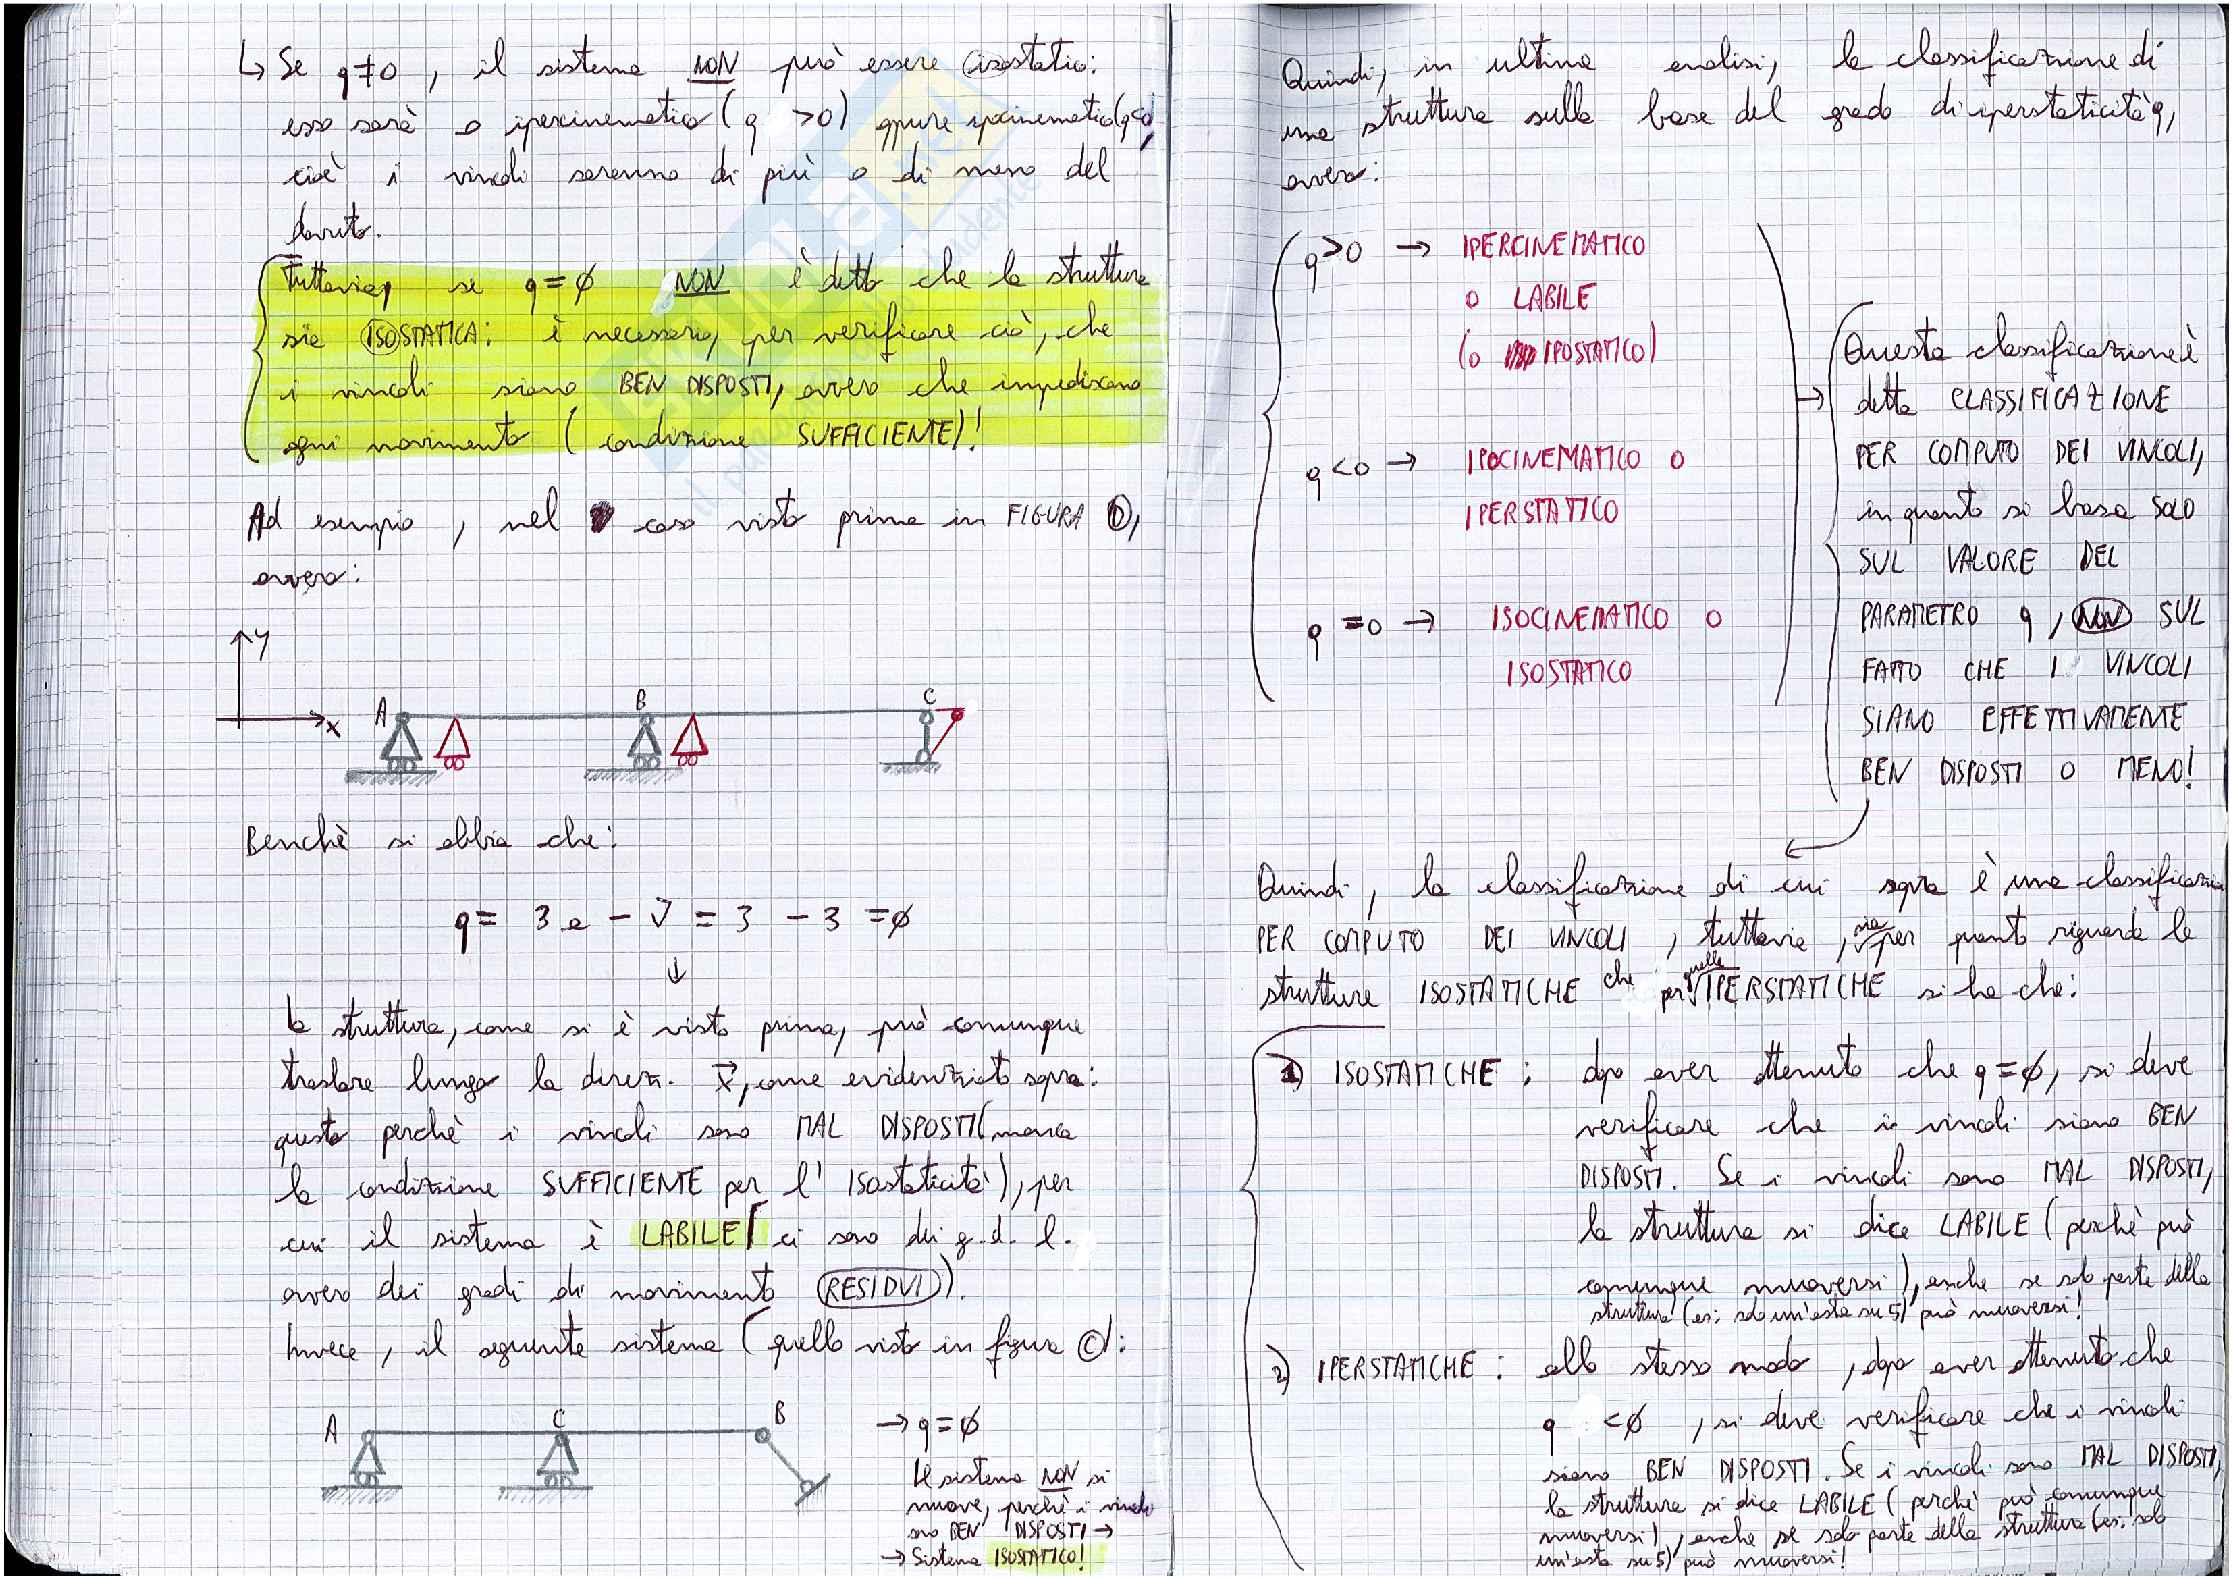 ↳ Se q≠0, il sistema NON può essere isostatico:
esso sarà o ipercinematico (q >0) oppure ipocinematico (q<0),
cioè i vincoli saranno di più o di meno del
dovuto.
Tuttavia, se q=∅ NON è detto che la struttura
sia ISOSTATICA: è necessario, per verificare ciò, che
i vincoli siano BEN DISPOSTI, ovvero che impediscano
ogni movimento (condizione SUFFICIENTE)!
Ad esempio, nel caso visto prima in FIGURA D,
ovvero:
y
x
A
B
C
Benchè si abbia che:
q= 3a - V = 3 - 3 = ∅
↓
la struttura, come si è visto prima, può comunque
traslare lungo la direz. x, come evidenziato sopra:
questo perchè i vincoli sono MAL DISPOSTI (manca
la condizione SUFFICIENTE per l'isostaticità), per
cui il sistema è LABILE (ci sono dei g.d.l.
ovvero dei gradi di movimento RESIDUI).
Invece, il seguente sistema (quello visto in figura C):
A
C
B
→ q=∅
Il sistema NON si
muove, perchè i vincoli
sono BEN DISPOSTI →
→ Sistema ISOSTATICO!
Quindi, in ultima analisi, la classificazione di
una struttura sulla base del grado di iperstaticità q,
ovvero:
q>0 → IPERCINEMATICO
O LABILE
(O IPOSTATICO)
q<0 → IPOCINEMATICO O
IPERSTATICO
q=0 → ISOCINEMATICO O
ISOSTATICO
Questa classificazione è
detta CLASSIFICAZIONE
PER COMPUTO DEI VINCOLI,
in quanto si basa SOLO
SUL VALORE DEL
PARAMETRO q, NON SUL
FATTO CHE I VINCOLI
SIANO EFFETTIVAMENTE
BEN DISPOSTI O MENO!
Quindi, la classificazione di cui sopra è una classificazione
PER COMPUTO DEI VINCOLI, tuttavia, sia per quanto riguarda le
strutture ISOSTATICHE che per quelle IPERSTATICHE si ha che:
1) ISOSTATICHE: dopo aver ottenuto che q=∅, si deve
verificare che i vincoli siano BEN
DISPOSTI. Se i vincoli sono MAL DISPOSTI,
la struttura si dice LABILE (perchè può
comunque muoversi), anche se solo parte della
struttura (es: solo un'asta su 5) può muoversi!
2) IPERSTATICHE: allo stesso modo, dopo aver ottenuto che
q <∅, si deve verificare che i vincoli
siano BEN DISPOSTI. Se i vincoli sono MAL DISPOSTI,
la struttura si dice LABILE (perchè può comunque
muoversi), anche se solo parte della struttura (es: solo
un'asta su 5) può muoversi!